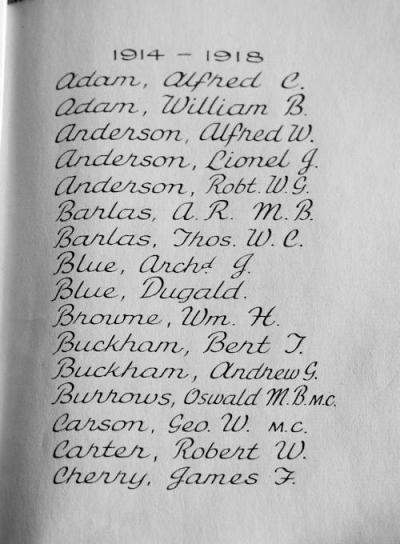 1914 - 1918
Adam, Alfred C.
Adam, William B.
Anderson, Alfred W.
Anderson, Lionel J.
Anderson, Robt. W. G.
Barlas, A. R. M. B.
Barlas, Thos. W. C.
Blue, Archd J.
Blue, Dugald.
Browne, Wm. H.
Buckham, Bert T.
Buckham, Andrew G.
Burrows, Oswald M. B. M.C.
Carson, Geo. W. M.C.
Carter, Robert W.
Cherry, James F.